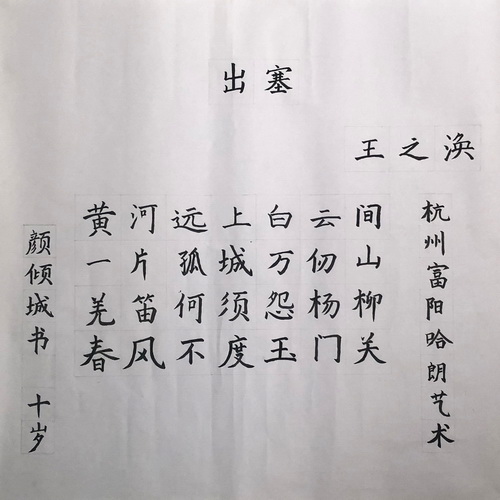 出塞
王之涣
黄河远上白云间
一片孤城万仞山
羌笛何须怨杨柳
春风不度玉门关
杭州富阳哈朗艺术
颜倾城书 十岁